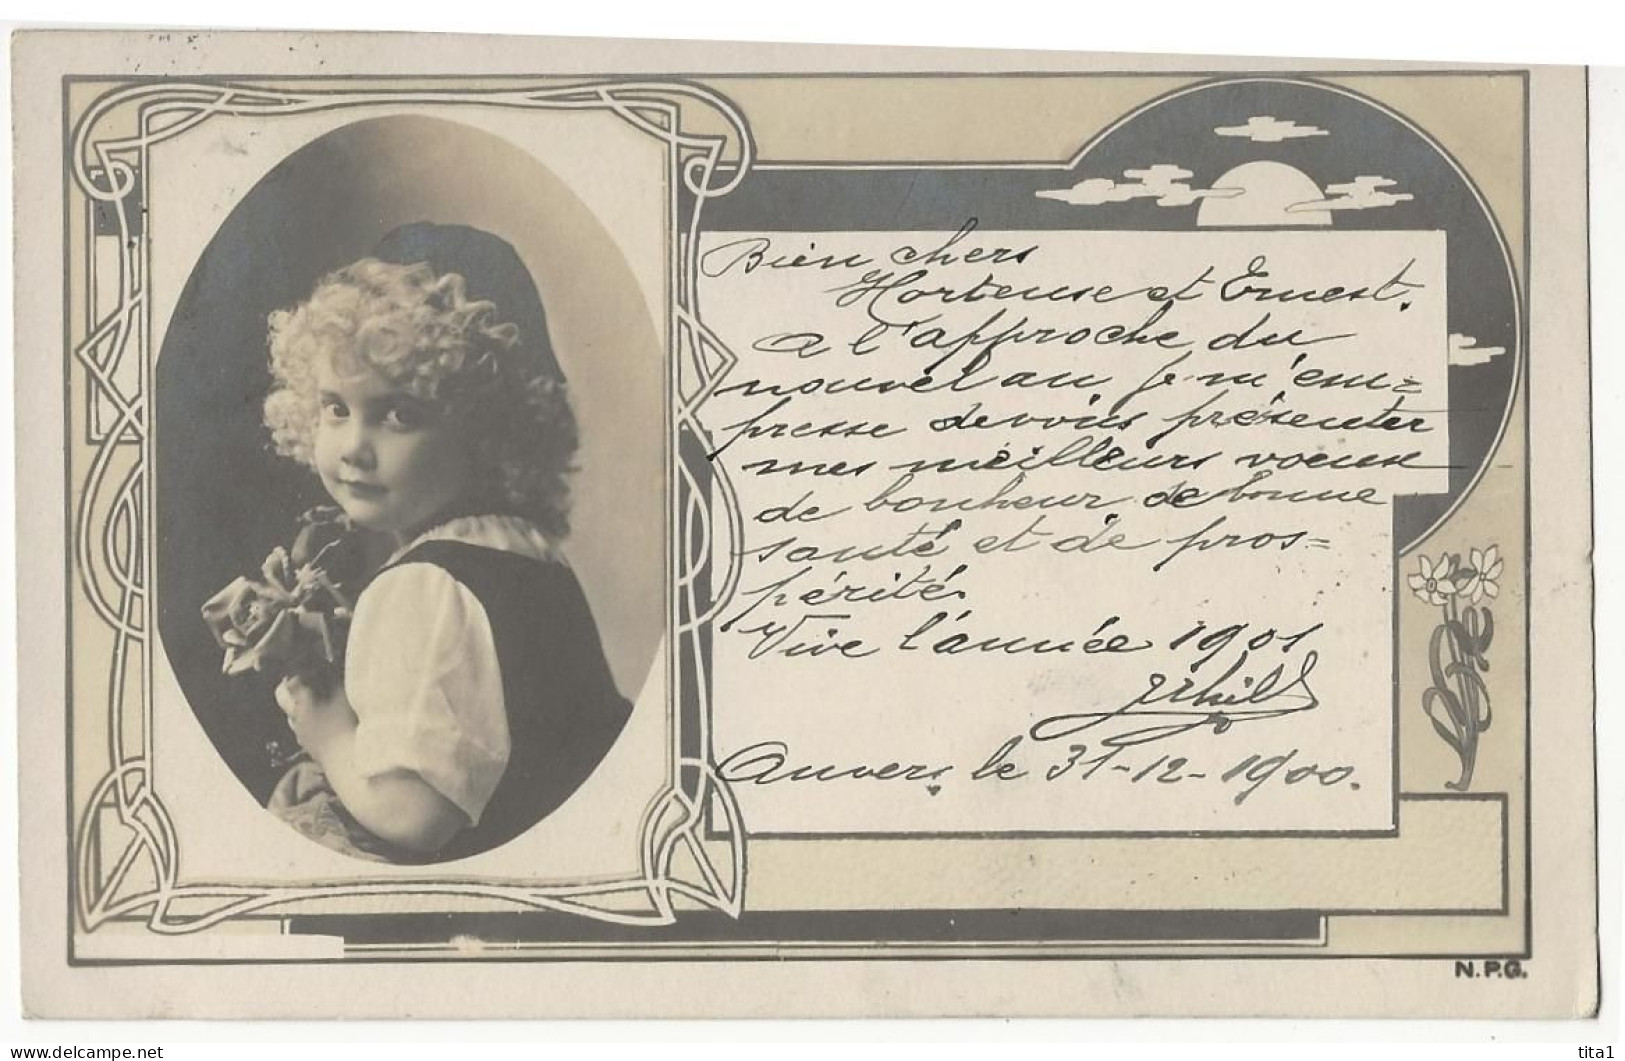 Bien chers
Hortense et Ernest.
A l'approche du
nouvel an je m'em=
presse de vous présenter
mes meilleurs voeux
de bonheur de bonne
santé et de pros=
périté.
Vive l'année 1901
Anvers le 31-12-1900.
N.P.G.
tita1